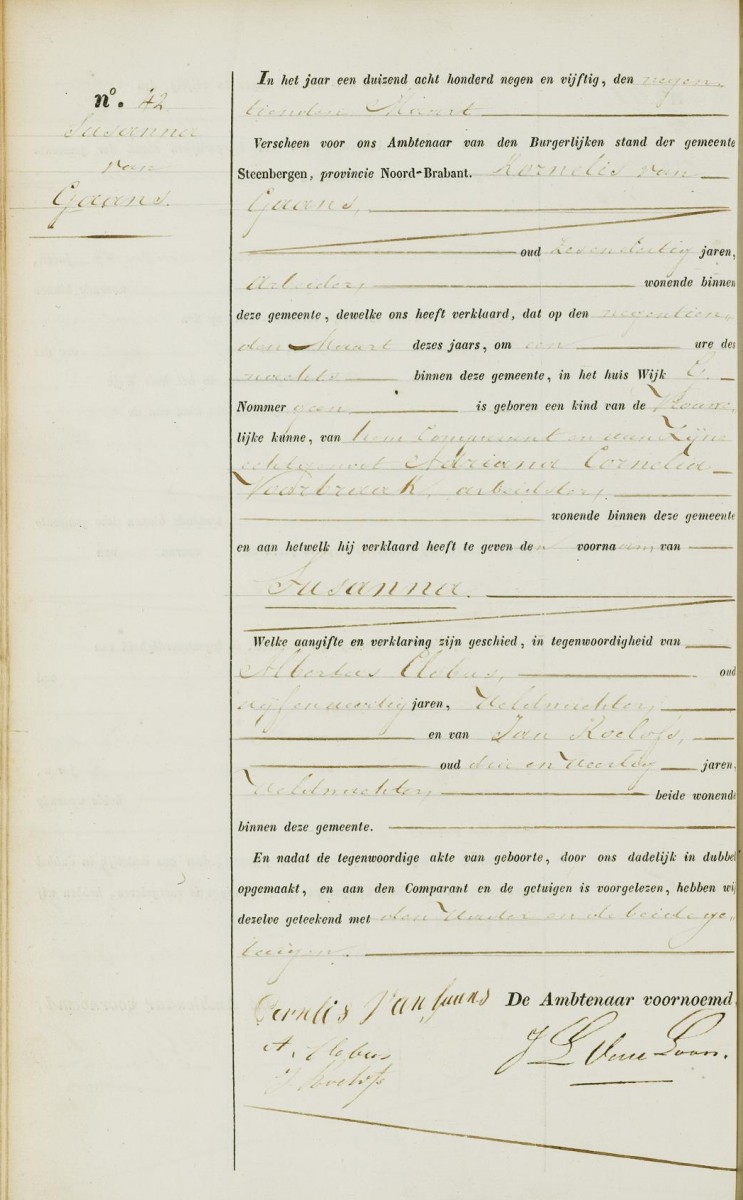 nº. 42
Susanna
van
Gaans.
In het jaar een duizend acht honderd negen en vijftig, den negen-
tienden Maart
Verscheen voor ons Ambtenaar van den Burgerlijken stand der gemeente
Steenbergen, provincie Noord-Brabant. Kornelis van
Gaans,
oud zesendertig jaren,
arbeider, wonende binnen
deze gemeente, dewelke ons heeft verklaard, dat op den negentien-
den Maart dezes jaars, om een ure des
nachts binnen deze gemeente, in het huis Wijk E.
Nommer geen is geboren een kind van de Vrouwe-
lijke kunne, van hem Comparant en van zijne
echtgenoot Adriana Cornelia
Veerbraak, arbeidster,
wonende binnen deze gemeente
en aan hetwelk hij verklaard heeft te geven den voornaam van
Susanna.
Welke aangifte en verklaring zijn geschied, in tegenwoordigheid van
Albertus Clobus, oud
jaren, Veldwachter,
en van Jan Roelofs,
oud drie en veertig jaren,
Veldwachter, beide wonende
binnen deze gemeente.
En nadat de tegenwoordige akte van geboorte, door ons dadelijk in dubbel
opgemaakt, en aan den Comparant en de getuigen is voorgelezen, hebben wij
dezelve geteekend met den Vader en de beide ge-
tuigen.
Cornelis Van Gaans De Ambtenaar voornoemd,
A. Clobus
J Roelofs
J L Van Loon.